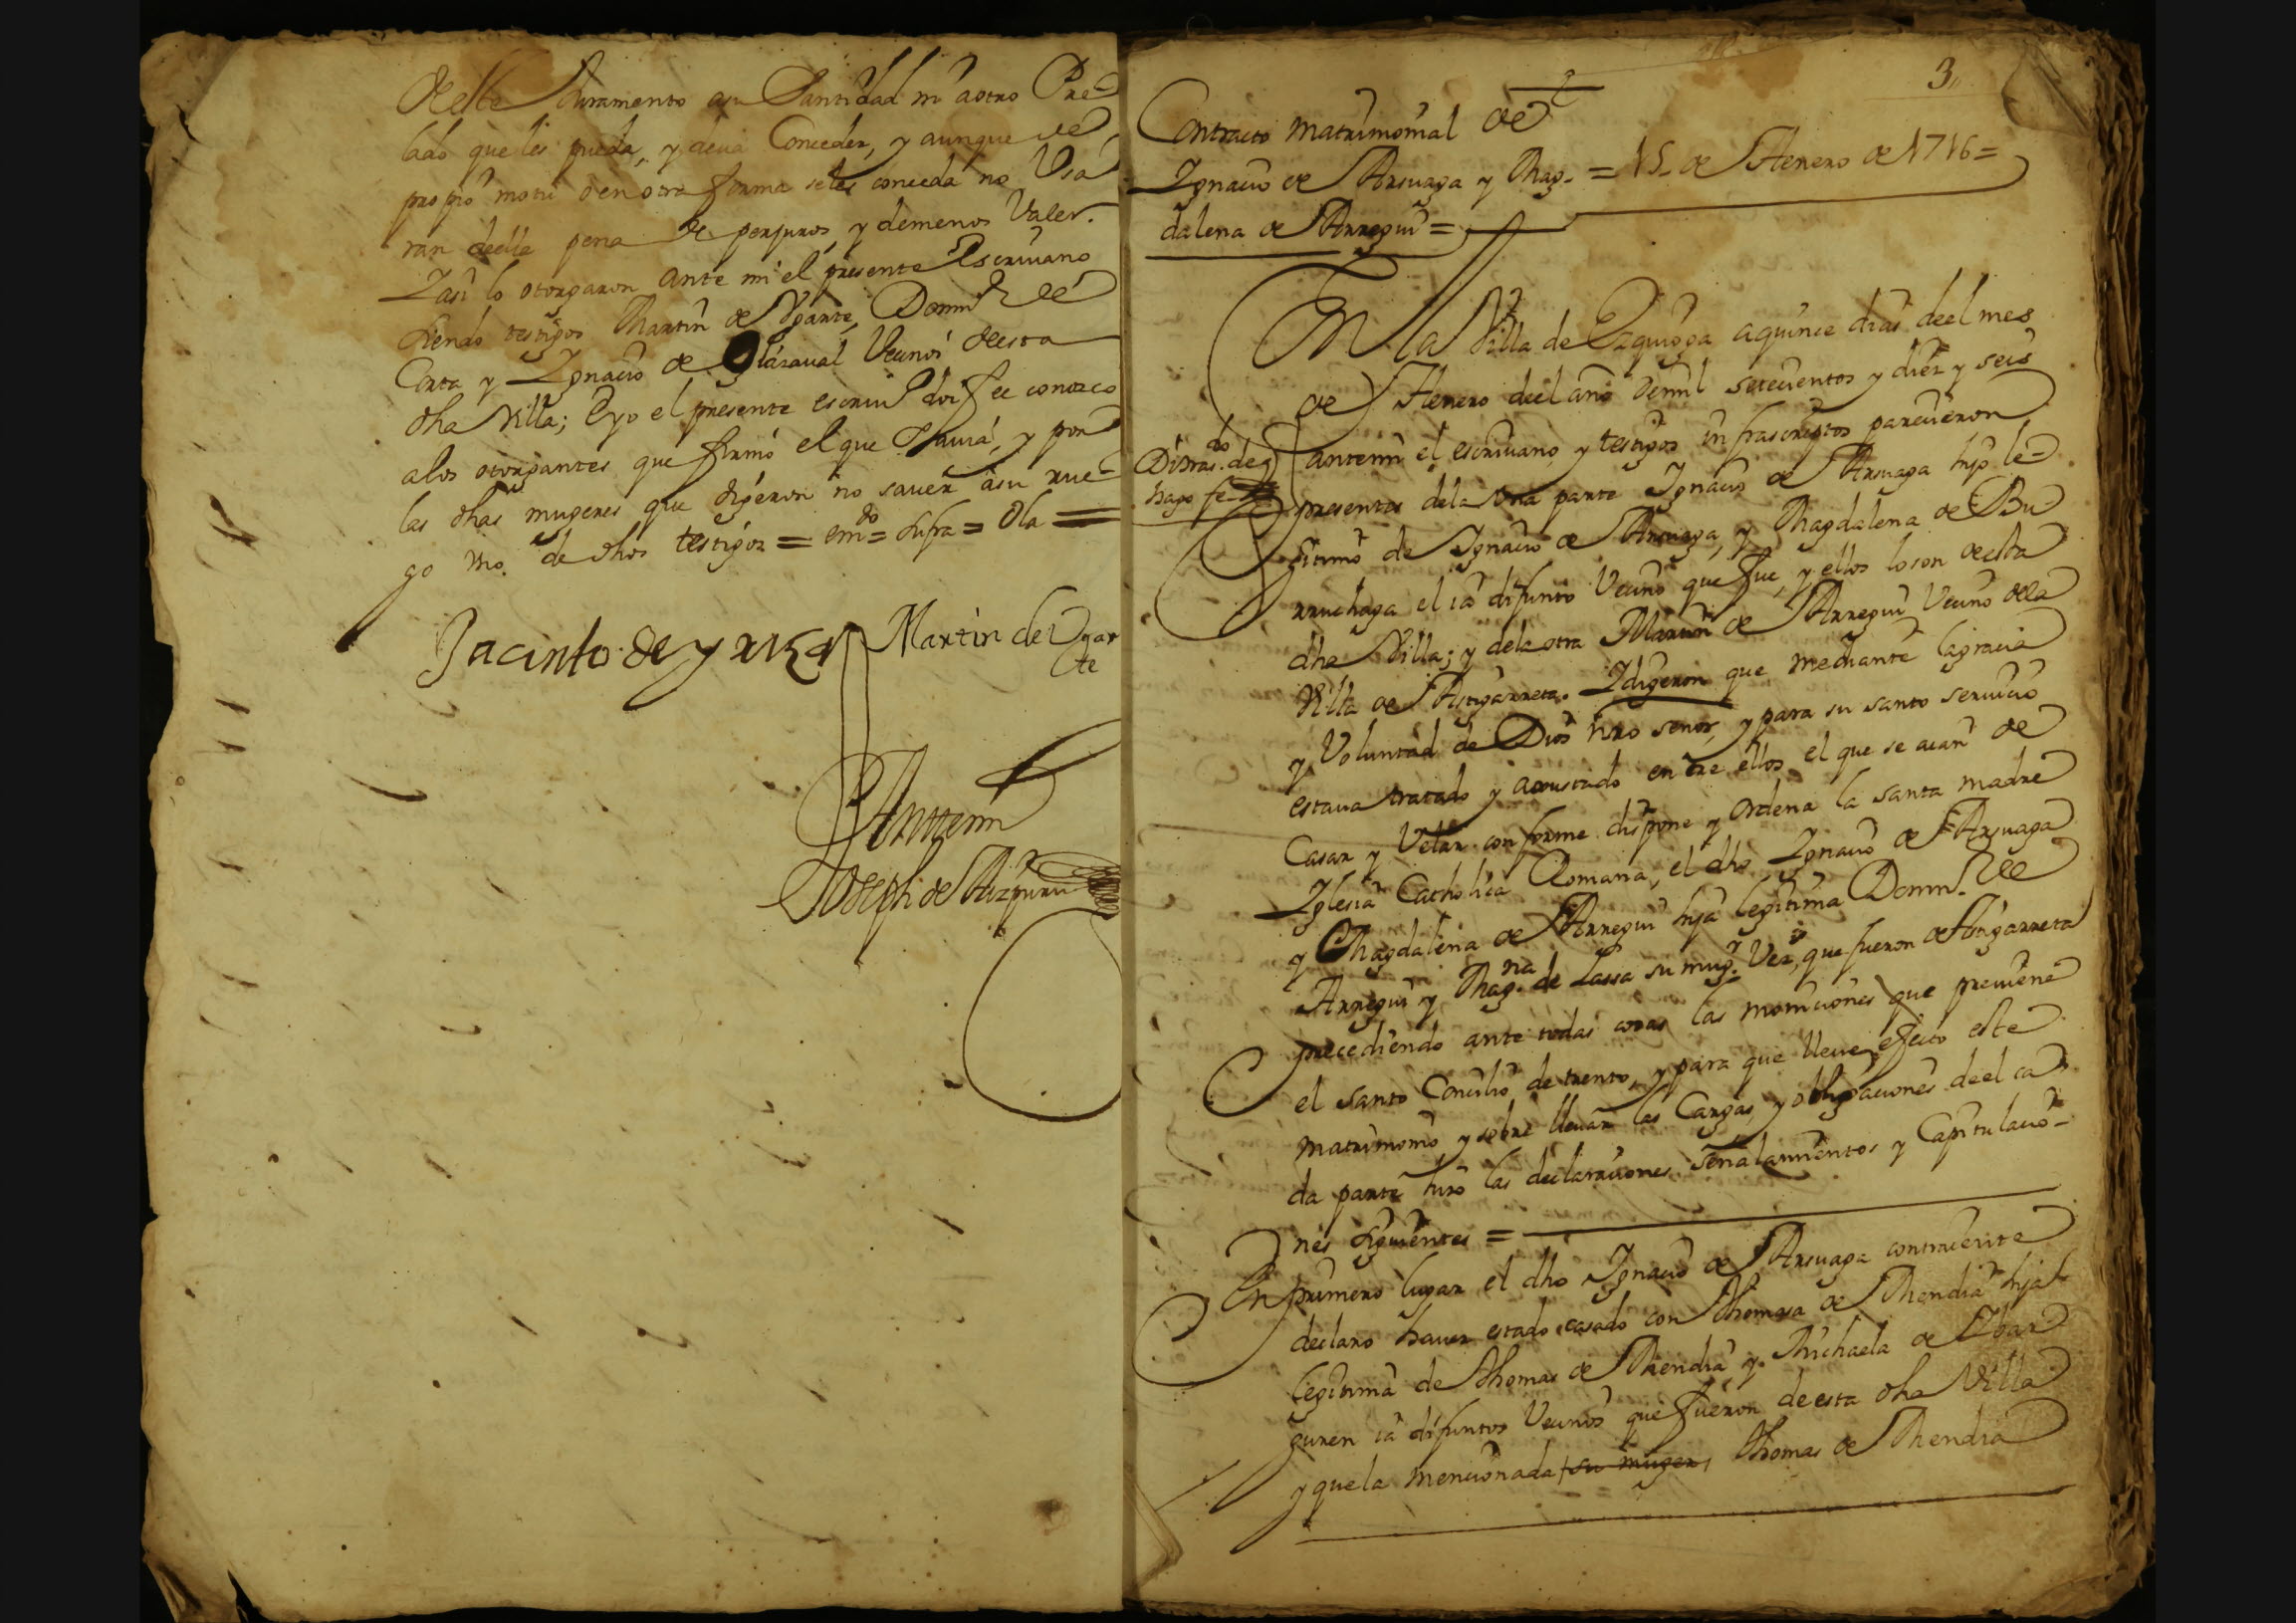 deeste Juramento asu Santidad ni aotro Pre-
lado que les pueda, y deva Conceder, y aunque de
propio motu o en otra forma seles conceda no Usa-
ran deella pena de perjuros, y demenos Valer.
Y asi lo otorgaron ante mi el presente Escrivano
siendo testigos Martin de Ugarte, Domin.º de
Corta y Ignacio de Olazaval Vecinos deesta
dha Villa; E yo el presente escriv.º doi fee conozco
alos otorgantes que firmó el que Savia, y por
las dhas mugeres que digeron no saver asu rue-
go Uno de dhos testigos = em.do = sufra = Ola =
Jacinto de Yriza Martin de Ugar
te
Antemi
Joseph de Aizpuru
3
Contracto matrimonial de
Ignacio de Arsuaga y Mag- = 15 de Henero de 1716 =
dalena de Arregui =
En la Villa de Ezquioga aquince dias deel mes
de Henero deel año demil setecientos y diez y seis
antemi el escrivano, y testigos infrascriptos parecieron
Di tras.do de q
hago fe
presentes dela Una parte Ignacio de Arsuaga hijo le-
gitimo de Ignacio de Arsuaga, y Magdalena de Bu-
rruchaga el ia difunto Vecino que fue, y ellos loson deesta
dha Villa; y dela otra Martin de Arregui Vecino dela
Villa de Astigarreta. Y digeron que mediante la gracia
y Voluntad de Dios nro señor, y para su santo servicio
estava tratado y aiustado entre ellos el que se aian de
Casar y Velar conforme dispone y ordena la santa madre
Iglesia Catholica Romana, el dho Ignacio de Arsuaga
y Magdalena de Arregui hija legitima Domin.º de
Arregui y Mag.na de Lassa su mug.r Vez.s que fueron de Astigarreta
precediendo ante todas cosas las moniciones que previene
el santo Concilio de trento, y para que lleve efecto este
matrimonio y sobre llevar las Cargas, y obligaciones deel ca-
da parte hizo las declaraciones señalamientos y Capitulacio-
nes siguientes =
En primero lugar el dho Ignacio de Arsuaga contraiente
declaro haver estado casado con Thomasa de Mendia hija
legitima de Thomas de Mendia y Michaela de Ybar-
guren ia difuntos Vecinos que fueron deesta dha Villa
y que la mencionada su muger, Thomas de Mendia